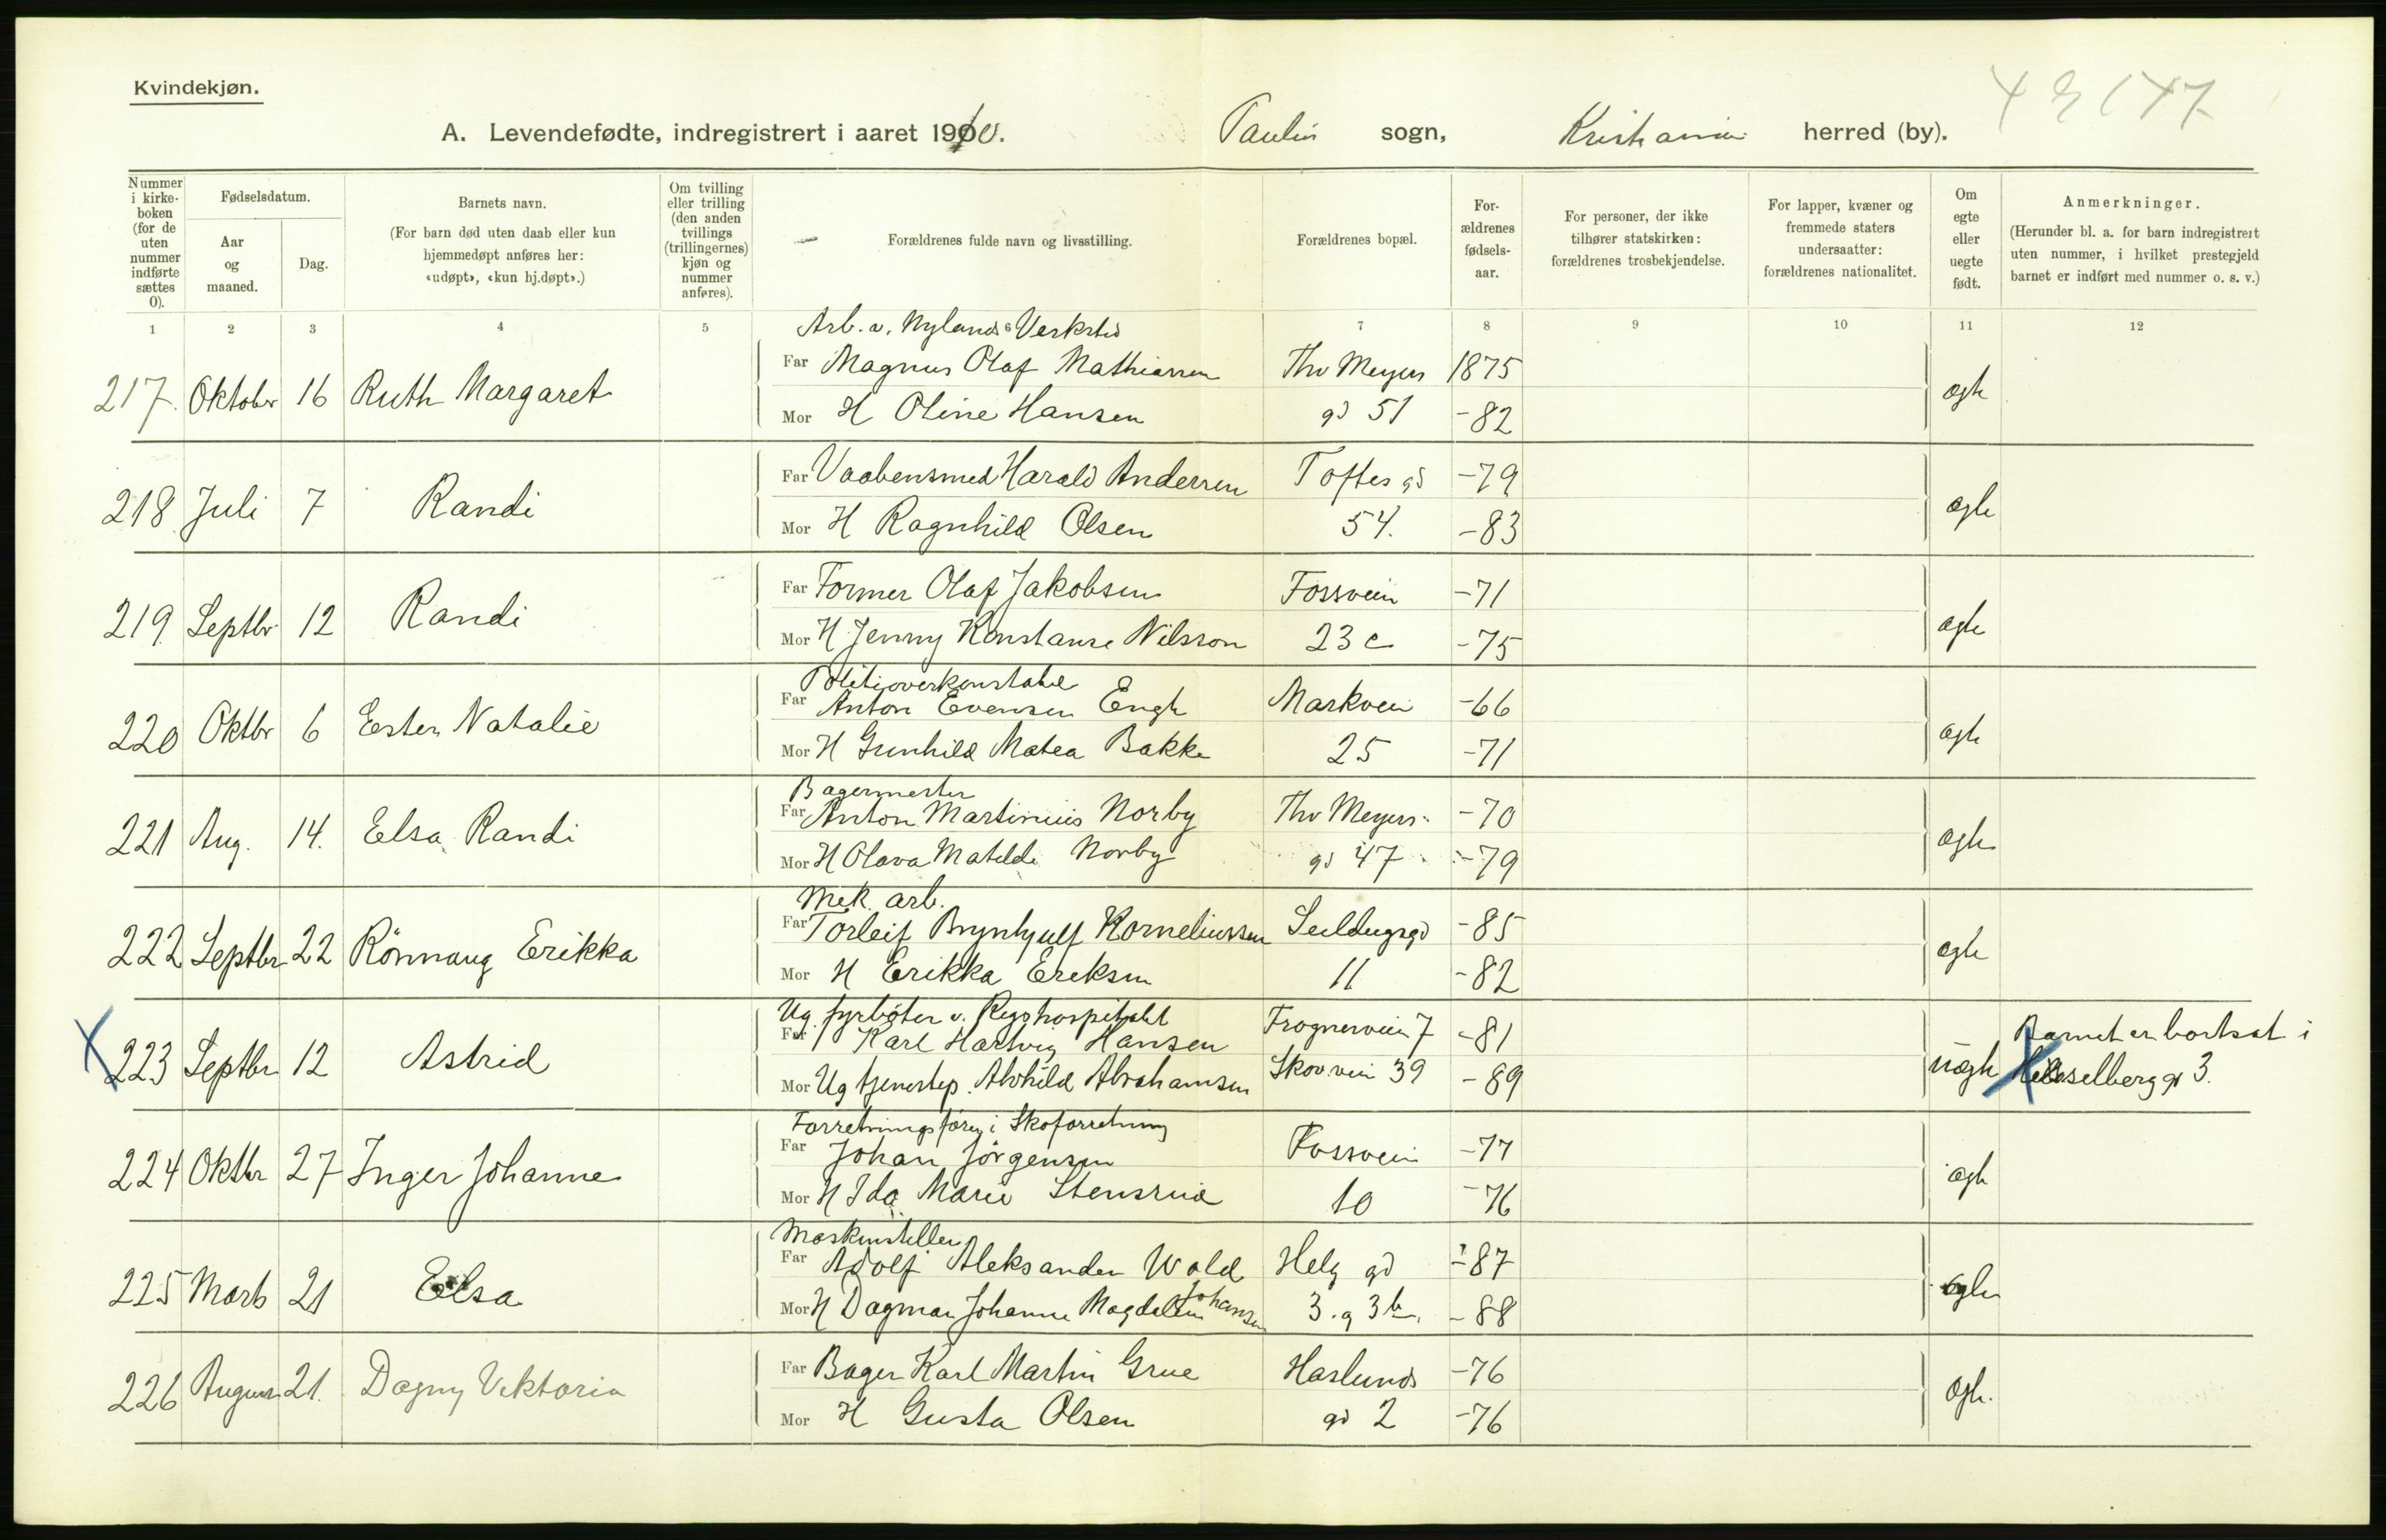 Kvindekjøn.
A. Levendefødte, indregistrert i aaret 1910. Paulus sogn, Kristiania herred (by).
Nummer i kirkeboken (for de uten nummer indførte sættes 0).
Fødselsdatum.
Aar og maaned.
Dag.
Barnets navn.
(For barn død uten daab eller kun hjemmedøpt anføres her: «udøpt», «kun hj.døpt».)
Om tvilling eller trilling (den anden tvillings (trillingernes) kjøn og nummer anføres).
Forældrenes fulde navn og livsstilling.
Forældrenes bopæl.
For-ældrenes fødsels-aar.
For personer, der ikke tilhører statskirken: forældrenes trosbekjendelse.
For lapper, kvæner og fremmede staters undersaatter: forældrenes nationalitet.
Om egte eller uegte født.
Anmerkninger.
(Herunder bl. a. for barn indregistrert uten nummer, i hvilket prestegjeld barnet er indført med nummer o. s. v.)
1 2 3 4 5 6 7 8 9 10 11 12
Arb. v. Nylands Verksted
217. Oktober 16 Ruth Margaret Far Magnus Olaf Mathiassen Thv Meyers 1875 ægte
Mor H Oline Hansen gd 51 -82
218 Juli 7 Randi Far Vaabensmed Harald Andersen Toftes gd -79 ægte
Mor H Ragnhild Olsen 54. -83
219 Septbr 12 Randi Far Former Olaf Jakobsen Fossvein -71 ægte
Mor H Jenny Konstanse Nilsson 23 c -75
Politioverkonstabel
220 Oktbr 6 Ester Natalie Far Anton Evensen Engh Markvei -66 ægte
Mor H Gunhild Matea Bakke 25 -71
Bagermester
221 Aug. 14. Elsa Randi Far Anton Martinius Norby Thv Meyers -70 ægte
Mor H Olava Matilde Norby gd 47 -79
Mek. arb.
222 Septbr 22 Rönnaug Erikka Far Torleif Brynhjulf Korneliussen Seildugsgd -85 ægte
Mor H Erikka Ereksen 11 -82
Ug. fyrböter v. Rigshospitalet
223 Septbr 12 Astrid Far Karl Hartvig Hansen Frognerveien 7 -81 uægte Barnet er bortsat i
Mor Ug tjenestep. Alvhild Abrahamsen Skovvein 39 -89 Hesselberg gd 3.
Forretningsförer i Skoforretning
224 Oktbr 27 Inger Johanne Far Johan Jörgensen Fossvein -77 ægte
Mor H Ida Marie Stensrud 10 -76
Maskinstiller
225 Marts 21 Elsa Far Adolf Aleksander Wold Helg gd -87 ægte
Mor H Dagmar Johanne Magdalene Johansen 3. g 3 b. -88
226 August 21. Dagny Viktoria Far Bager Karl Martin Grue Haslunds -76 ægte.
Mor H Gusta Olsen gd 2 -76